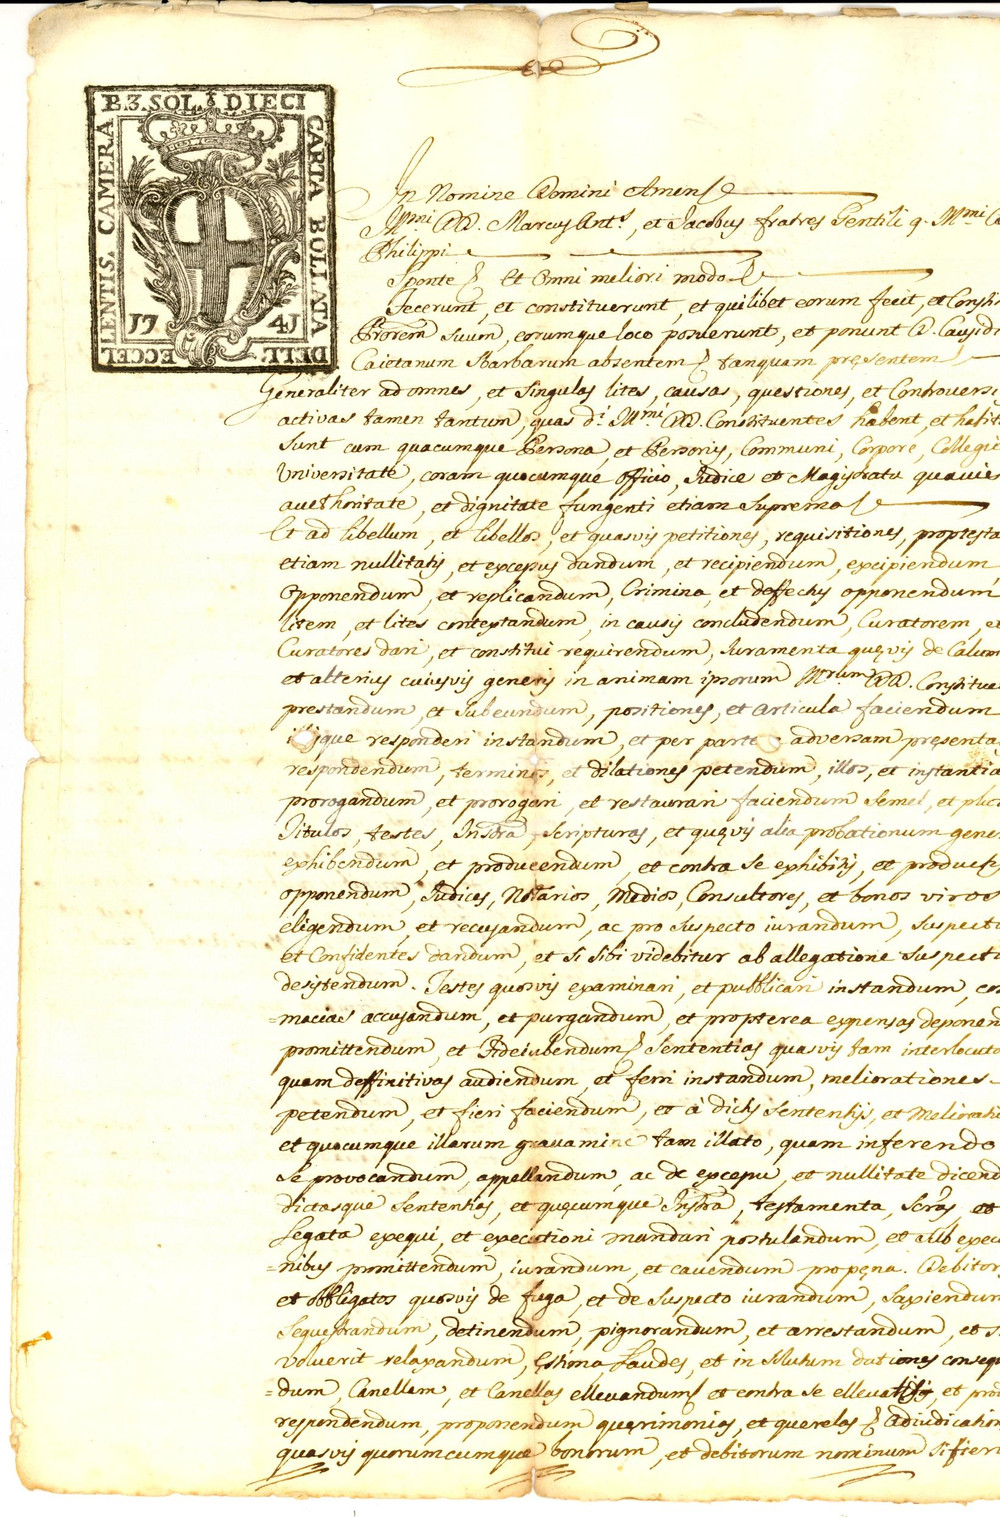 B. 3. SOL. DIECI
CARTA BOLLATA
DELL'
ECCEL
LENTIS. CAMERA
17 41
In Nomine Domini Amen
Mmi DD. Marcus Ants, et Jacobus fratres Gentili q. Mmi
Philippi
Sponte Et Omni meliori modo
Fecerunt, et constituerunt, et quilibet eorum fecit, et
Prorem suum, eorumque loco posuerunt, et ponunt D.
Caietanum Barbarum absentem tanquam presentem
Generaliter ad omnes, et singulas lites, causas, questiones, et
activas tamen tantum, quas di Mmi DD. Constituentes habent, et
sunt cum quacumque Persona, et Personis, Communi, Corpore,
Universitate, coram quocumque officio, Judice et Magistratu
aucthoritate, et dignitate fungenti etiam Suprema
Et ad libellum, et libellos, et quasvis petitiones, requisitiones,
etiam nullitatis, et excessus dandum, et recipiendum, excipiendum
opponendum, et replicandum, Crimina, et deffectus opponendum
litem, et lites contestandum, in causis concludendum, Curatorem, et
Curatores dari, et constitui requirendum, Iuramenta quevis de
et alterius cuiusvis generis in animam ipsorum Mrum DD.
prestandum, et subeundum, positiones, et articula faciendum
responderi instandum, et per parte adversam
respondendum, terminos, et dilationes petendum, illos, et
prorogandum, et prorogari, et restaurari faciendum semel, et
Titulos, testes, Instra, scripturas, et quevis alia probationum
exhibendum, et producendum, et contra se exhibitis, et
opponendum, Judices, Notarios, Medios, Consultores, et bonos viros
eligendum, et recusandum, ac pro suspecto iurandum,
et Confidentes dandum, et si sibi videbitur ab allegatione
desistendum. Testes quosvis examinari, et pubblicari instandum,
=macias accusandum, et purgandum, et propterea expensas
promittendum, et fideiubendum Sententias quasvis tam
quam deffinitivas audiendum, et ferri instandum, meliorationes
petendum, et fieri faciendum, et à dictis sententijs, et
et quocumque illarum gravamine tam illato, quam inferendo
se provocandum, appellandum, ac de excessu, et nullitate
dictasque sententias, et quecumque Instra, testamenta, et
Legata exequi, et executioni mandari postulandum, et
=nibus promittendum, iurandum, et cavendum
et obbligatos quosvis de fuga, et de suspecto iurandum,
sequestrandum, detinendum, pignorandum, et arrestandum, et
voluerit relaxandum, Laudes, et in
=dum, Canellam, et Canellas ellevandum et contra se et
respondendum, proponendum querimonias, et querelas
quasvis quorumcumque bonorum, et debitorum nominum